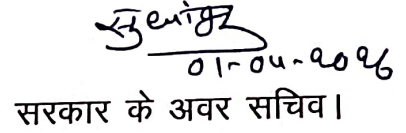 सुधांशु
01-04-2026
सरकार के अवर सचिव।